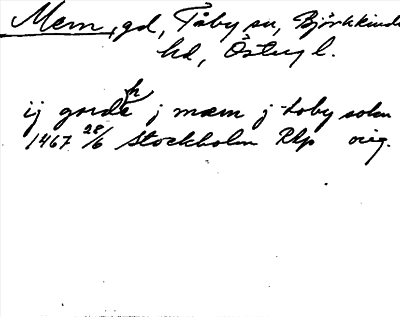 Mem, gd, Tåby sn, Björkekinds
hd, Östergl.
ij gordhe j mæm j toby sokn
1467 28/6 Stockholm RAp orig.